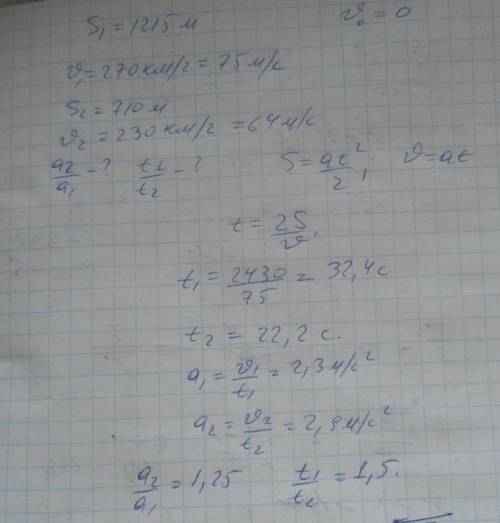 S₁ = 1215 м   𝒱₀ = 0
𝒱₁ = 270 км/г = 75 м/с
S₂ = 710 м
𝒱₂ = 230 км/г = 64 м/с
a₂/a₁ - ?   t₁/t₂ - ?   S = at²/2;   𝒱 = at
t = 2S/𝒱,
t₁ = 2430/75 = 32,4 с
t₂ = 22,2 с.
a₁ = 𝒱₁/t₁ = 2,3 м/с²
a₂ = 𝒱₂/t₂ = 2,9 м/с²
a₂/a₁ = 1,25   t₁/t₂ = 1,5.